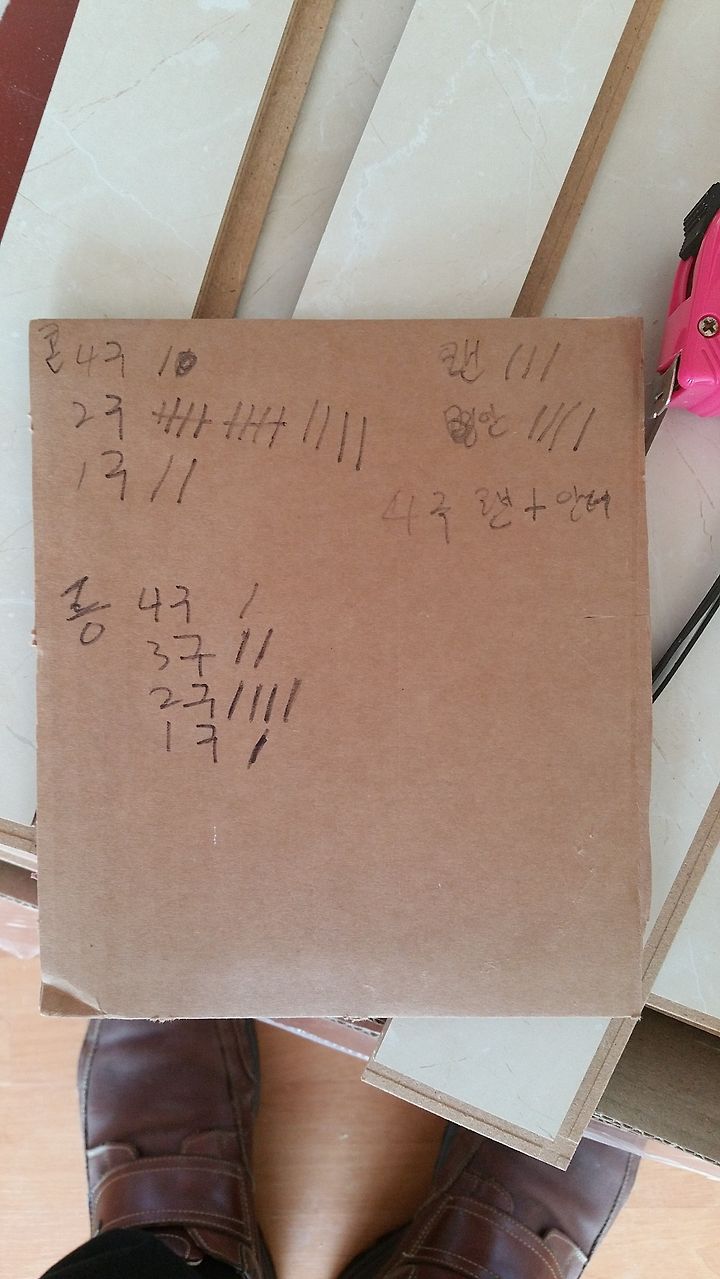 콘 4구 1
2구 卌 卌 ////
1구 //
랜 ///
////
4구 랜 + 안테
4구 /
3구 //
2구 ////
1구 /